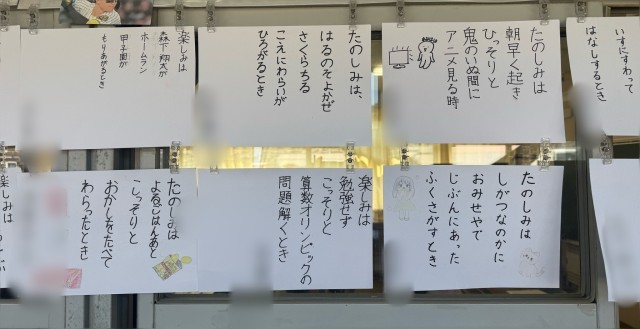 いすにすわって
はなしするとき
たのしみは
朝早く起き
ひっそりと
鬼のいぬ間に
アニメ見る時
たのしみは、
はるのそよかぜ
さくらちる
こえにわらいが
ひろがるとき
楽しみは
森下翔太が
ホームラン
甲子園が
もりあがるとき
たのしみは
しがつなのかに
おみせやで
じぶんにあった
ふくさがすとき
楽しみは
勉強せず
こっそりと
算数オリンピックの
問題解くとき
たのしみは
よるごはんあと
こっそりと
おかしをたべて
わらったとき
楽しみは